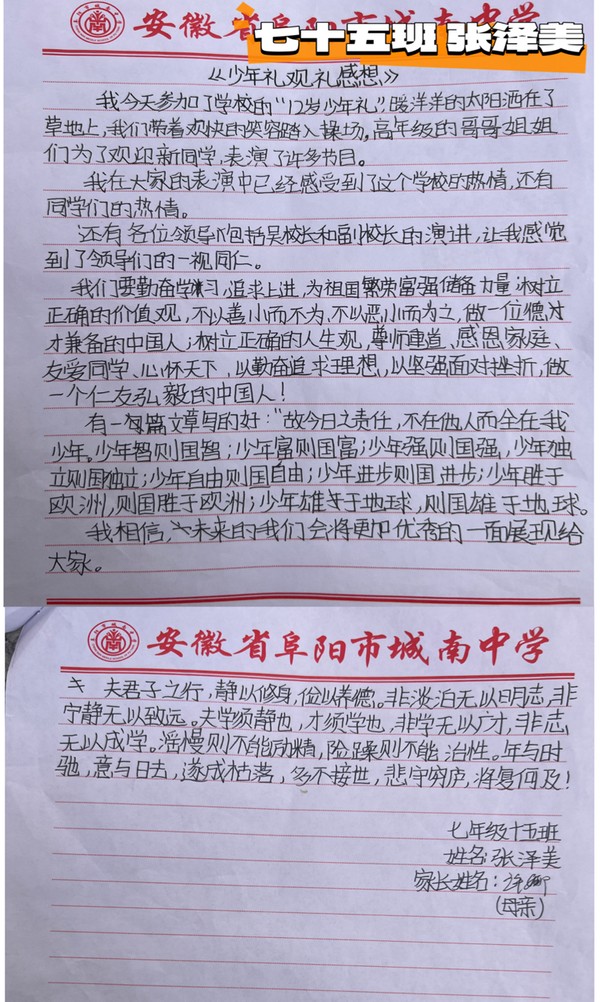 安徽省阜阳市城南中学
七十五班 张泽美
《少年礼观礼感想》
我今天参加了学校的“12岁少年礼”暖洋洋的太阳洒在了
草地上,我们带着欢快的笑容踏入操场。高年级的哥哥姐姐
们为了欢迎新同学,表演了许多节目。
我在大家的表演中已经感受到了这个学校的热情,还有
同学们的热情。
还有各位领导包括吴校长和副校长的演讲,让我感觉
到了领导们的一视同仁。
我们要勤奋学习,追求上进,为祖国繁荣富强储备力量;树立
正确的价值观,不以善小而不为,不以恶小而为之,做一位德才
才兼备的中国人;树立正确的人生观,尊师重道、感恩家庭、
友爱同学、心怀天下,以勤奋追求理想,以坚强面对挫折,做
一个仁友弘毅的中国人!
有一篇文章写的好:“故今日之责任,不在他人而全在我
少年。少年智则国智;少年富则国富;少年强则国强,少年独
立则国独立;少年自由则国自由;少年进步则国进步;少年胜于
欧洲,则国胜于欧洲;少年雄于地球,则国雄于地球。
我相信,未来的我们会将更加优秀的一面展现给
大家。
安徽省阜阳市城南中学
夫君子之行,静以修身,俭以养德。非淡泊无以明志,非
宁静无以致远。夫学须静也,才须学也,非学无以广才,非志
无以成学。淫慢则不能励精,险躁则不能治性。年与时
驰,意与日去,遂成枯落,多不接世,悲守穷庐,将复何及!
七年级十五班
姓名:张泽美
家长姓名:
(母亲)